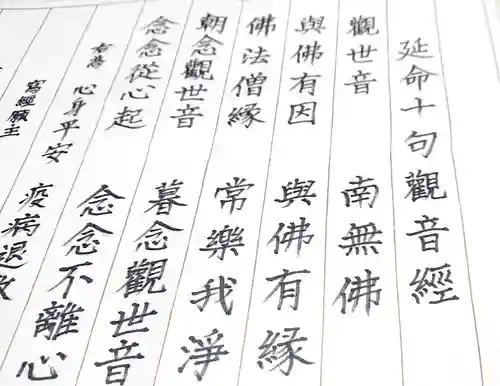 延命十句觀音經
觀世音 南無佛
與佛有因 與佛有緣
佛法僧緣 常樂我淨
朝念觀世音 暮念觀世音
念念從心起 念念不離心
右為 心身平安
疫病退散
寫經願主